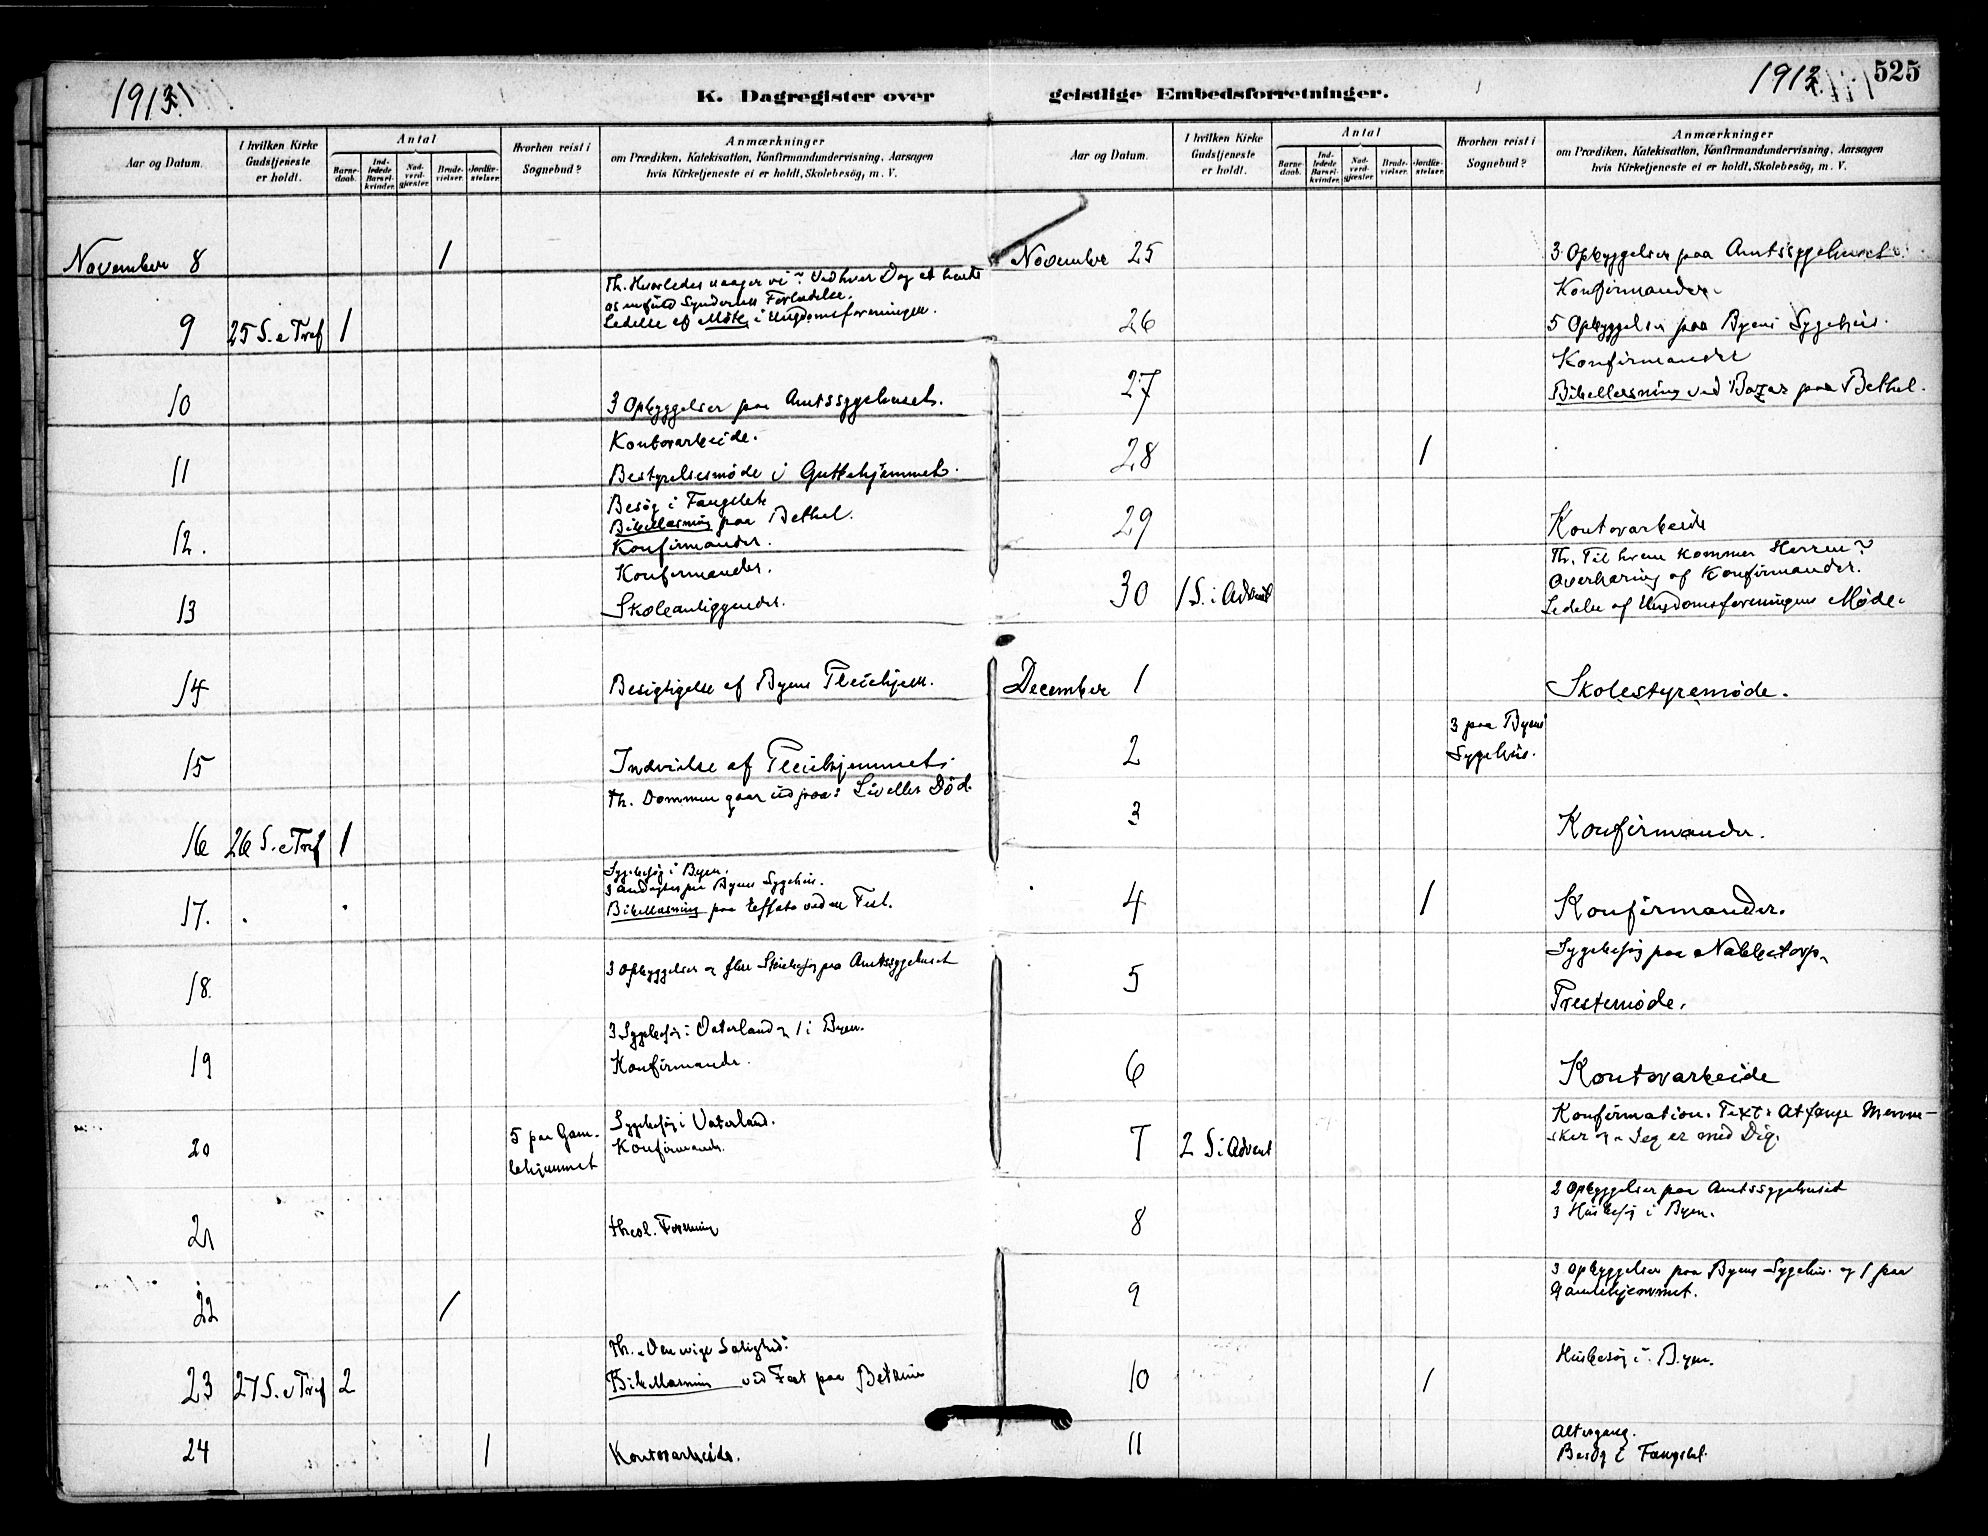 1913.
K. Dagregister over
Aar og Datum.
I hvilken Kirke Gudstjeneste er holdt.
Antal
Barne-daab.
Ind-ledede Barsel-kvinder.
Nad-verd-gjæster.
Brude-vielser.
Jordfæ-stelser.
Hvorhen reist i Sognebud?
Anmærkninger
om Prædiken, Katekisation, Konfirmandundervisning, Aarsagen
hvis Kirketjeneste ei er holdt, Skolebesög, m. V.
November 8 1
Th. Hvorledes naaer vi ved hver Dag at
Syndernes Forladelse.
9 25 S. e Tref 1 Ledelse af Möte i Ungdomsforeningen.
10 3 Opbyggelser paa Amtssygehuset.
Kontorarbeide.
11 Bestyrelsesmøde i Guttehjemmet.
Besög i Fængslet
Bibellæsning paa Bethel.
12. Konfirmander.
Konfirmander.
13 Skoleanliggender.
14 Besigtigelse af Byens Pleiehjem.
15 Indvielse af Pleiehjemmet.
Th. Dommen gaar ud paa: Liv eller Død.
16 26 S. e Tref 1
Sygebesög i Byen.
3 Andagter paa Byens Sygehus.
17. Bibellæsning paa Effata ved en Fest.
18. 3 Opbyggelser og flere paa Amtssygehuset
3 Sygebesög i Vaterland og 1 i Byen.
19 Konfirmander.
Sygebesög i Vaterland.
20 5 paa Gamlehjemmet Konfirmander.
21 theol. Forening
22 1
Th. Den evige Salighed.
23 27 S. e Tref 2 Bibellæsning ved Fest paa Betania
24 1 Kontorarbeide.
1913.
525
geistlige Embedsforretninger.
Aar og Datum.
I hvilken Kirke Gudstjeneste er holdt.
Antal
Barne-daab.
Ind-ledede Barsel-kvinder.
Nad-verd-gjæster.
Brude-vielser.
Jordfæ-stelser.
Hvorhen reist i Sognebud?
Anmærkninger
om Prædiken, Katekisation, Konfirmandundervisning, Aarsagen
hvis Kirketjeneste ei er holdt, Skolebesög, m. V.
November 25 3 Opbyggelser paa Amtssygehuset.
Konfirmander.
26 5 Opbyggelser paa Byens Sygehus.
Konfirmander
27 Bibellæsning ved Bazar paa Bethel.
28 1
29 Kontorarbeide
Th. Til hvem kommer Herren?
Overhöring af Konfirmander.
30 1 S. i Advent Ledelse af Ungdomsforeningens Møde.
December 1 Skolestyremøde.
2 3 paa Byens Sygehus.
3 Konfirmander.
4 1 Konfirmander.
Sygebesög paa Nabbetorp.
5 Prestemøde.
6 Kontorarbeide
Konfirmation. Text: At fange Menne-
7 2 S. i Advent sker og Jeg er med Dig.
2 Opbyggelser paa Amtssygehuset
8 3 Husbesög i Byen.
3 Opbyggelser paa Byens Sygehus og 1 paa
9 Gamlehjemmet.
Husbesög i Byen.
10 1
Altergang.
11 Besög i Fængslet.